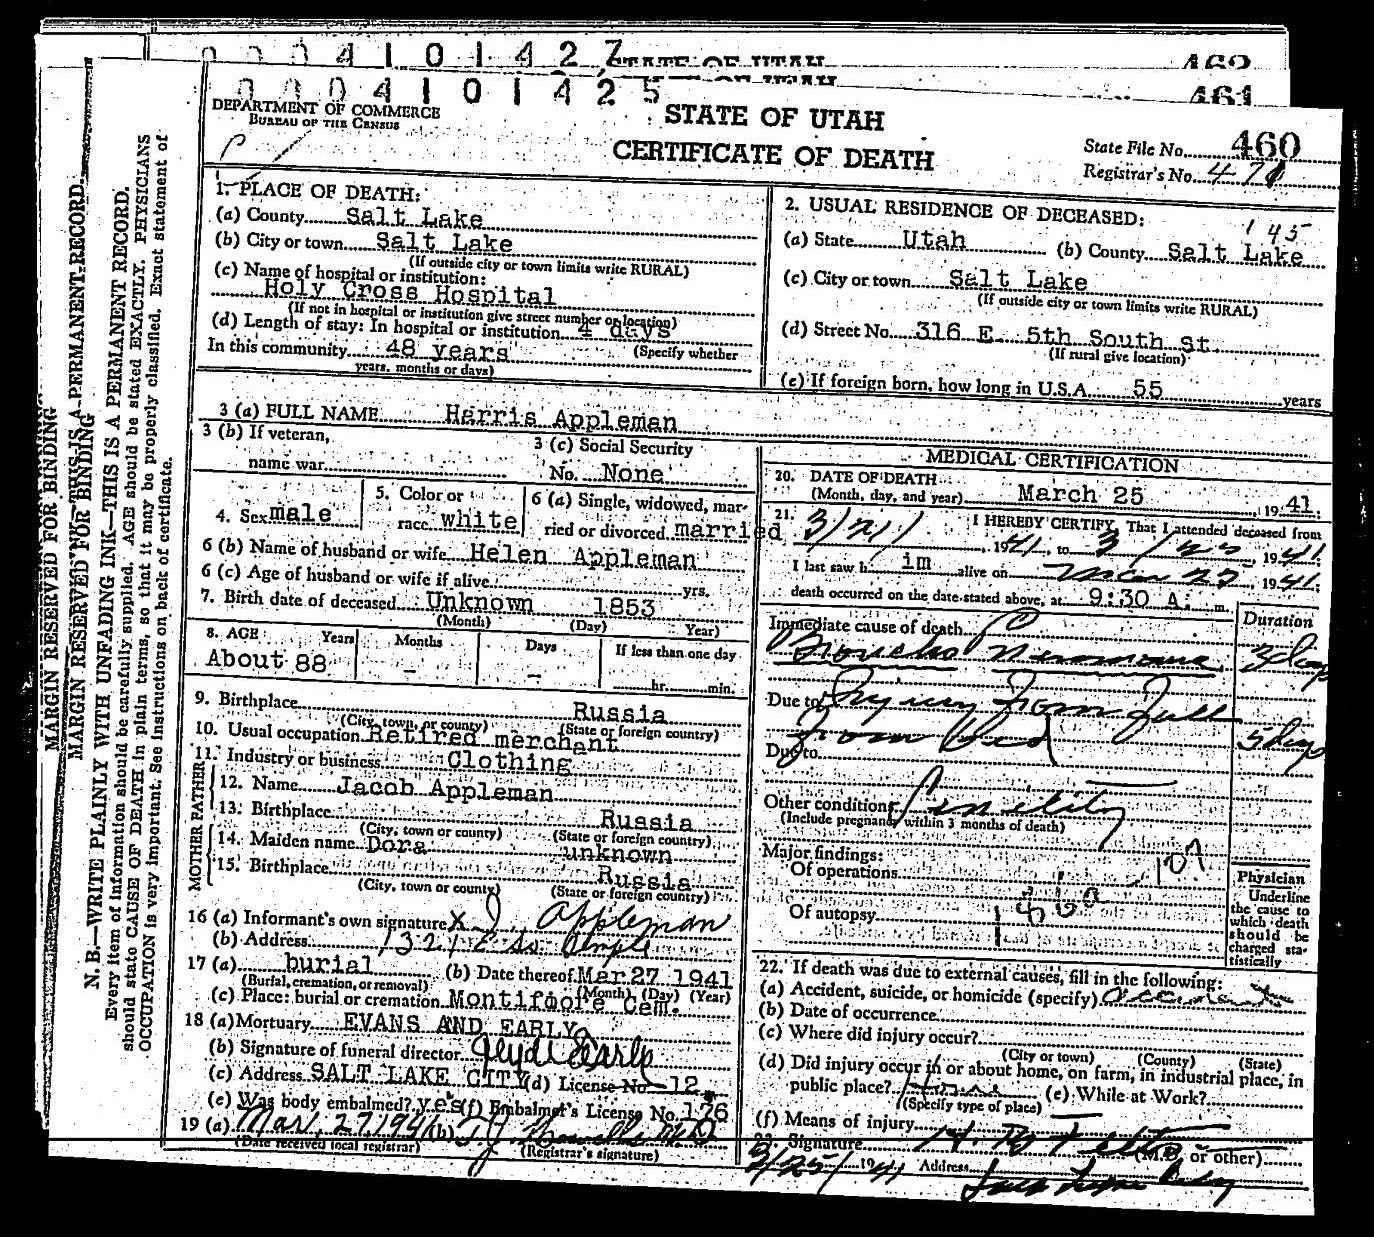 0004101427 STATE OF UTAH 462
461
0004101425
DEPARTMENT OF COMMERCE
BUREAU OF THE CENSUS
STATE OF UTAH
CERTIFICATE OF DEATH
State File No. 460
Registrar's No. 471
MARGIN RESERVED FOR BINDING
MARGIN RESERVED FOR BINDING
N. B.—WRITE PLAINLY WITH UNFADING INK—THIS IS A PERMANENT RECORD.
Every item of information should be carefully supplied. AGE should be stated EXACTLY. PHYSICIANS
should state CAUSE OF DEATH in plain terms, so that it may be properly classified. Exact statement of
OCCUPATION is very important. See instructions on back of certificate.
1. PLACE OF DEATH:
(a) County Salt Lake
(b) City or town Salt Lake
(If outside city or town limits write RURAL)
(c) Name of hospital or institution:
Holy Cross Hospital
(If not in hospital or institution give street number or location)
(d) Length of stay: In hospital or institution 4 days
In this community 48 years (Specify whether
years, months or days)
2. USUAL RESIDENCE OF DECEASED:
145
(a) State Utah (b) County Salt Lake
(c) City or town Salt Lake
(If outside city or town limits write RURAL)
(d) Street No. 316 E. 5th South St.
(If rural give location)
(e) If foreign born, how long in U.S.A. 55 years
3 (a) FULL NAME Harris Appleman
3 (b) If veteran,
name war
3 (c) Social Security
No. None
4. Sex male
5. Color or
race white
6 (a) Single, widowed, mar-
ried or divorced married
6 (b) Name of husband or wife Helen Appleman
6 (c) Age of husband or wife if alive yrs.
7. Birth date of deceased Unknown 1853
(Month) (Day) Year)
8. AGE Years Months Days If less than one day
About 88 - - hr. min.
9. Birthplace Russia
(City, town, or county) (State or foreign country)
10. Usual occupation Retired merchant
11. Industry or business Clothing
FATHER
12. Name Jacob Appleman
13. Birthplace Russia
(City, town or county) (State or foreign country)
MOTHER
14. Maiden name Dora unknown
15. Birthplace Russia
(City, town or county) (State or foreign country)
16 (a) Informant's own signature X J Appleman
(b) Address 1321 E So. Temple
17 (a) burial (b) Date thereof Mar 27 1941
(Burial, cremation, or removal) (Month) (Day) (Year)
(c) Place: burial or cremation Montifoore Cem.
18 (a) Mortuary EVANS AND EARLY
(b) Signature of funeral director Clyde Early
(c) Address SALT LAKE CITY (d) License No. 12
(e) Was body embalmed? yes (f) Embalmer's License No. 176
19 (a) Mar. 27 1941 (b) T. J. Howells M.D.
(Date received local registrar) (Registrar's signature)
MEDICAL CERTIFICATION
20. DATE OF DEATH
(Month, day, and year) March 25, 1941.
21. I HEREBY CERTIFY, That I attended deceased from
3/21/, 1941, to 3/25, 1941.
I last saw him alive on Mar 25, 1941.
death occurred on the date stated above, at 9:30 A. m.
Immediate cause of death Duration
Broncho Pneumonia 3 days
Due to Injury from fall
from bed 5 days
Due to
Other conditions Senility
(Include pregnancy within 3 months of death)
Major findings:
Of operations 107
Of autopsy 186a
Physician
Underline
the cause to
which death
should be
charged sta-
tistically
22. If death was due to external causes, fill in the following:
(a) Accident, suicide, or homicide (specify) accident
(b) Date of occurrence
(c) Where did injury occur?
(City or town) (County) (State)
(d) Did injury occur in or about home, on farm, in industrial place, in
public place? Home (e) While at Work?
(Specify type of place)
(f) Means of injury
23. Signature (M.D. or other)
3/25/1941 Address Salt Lake City